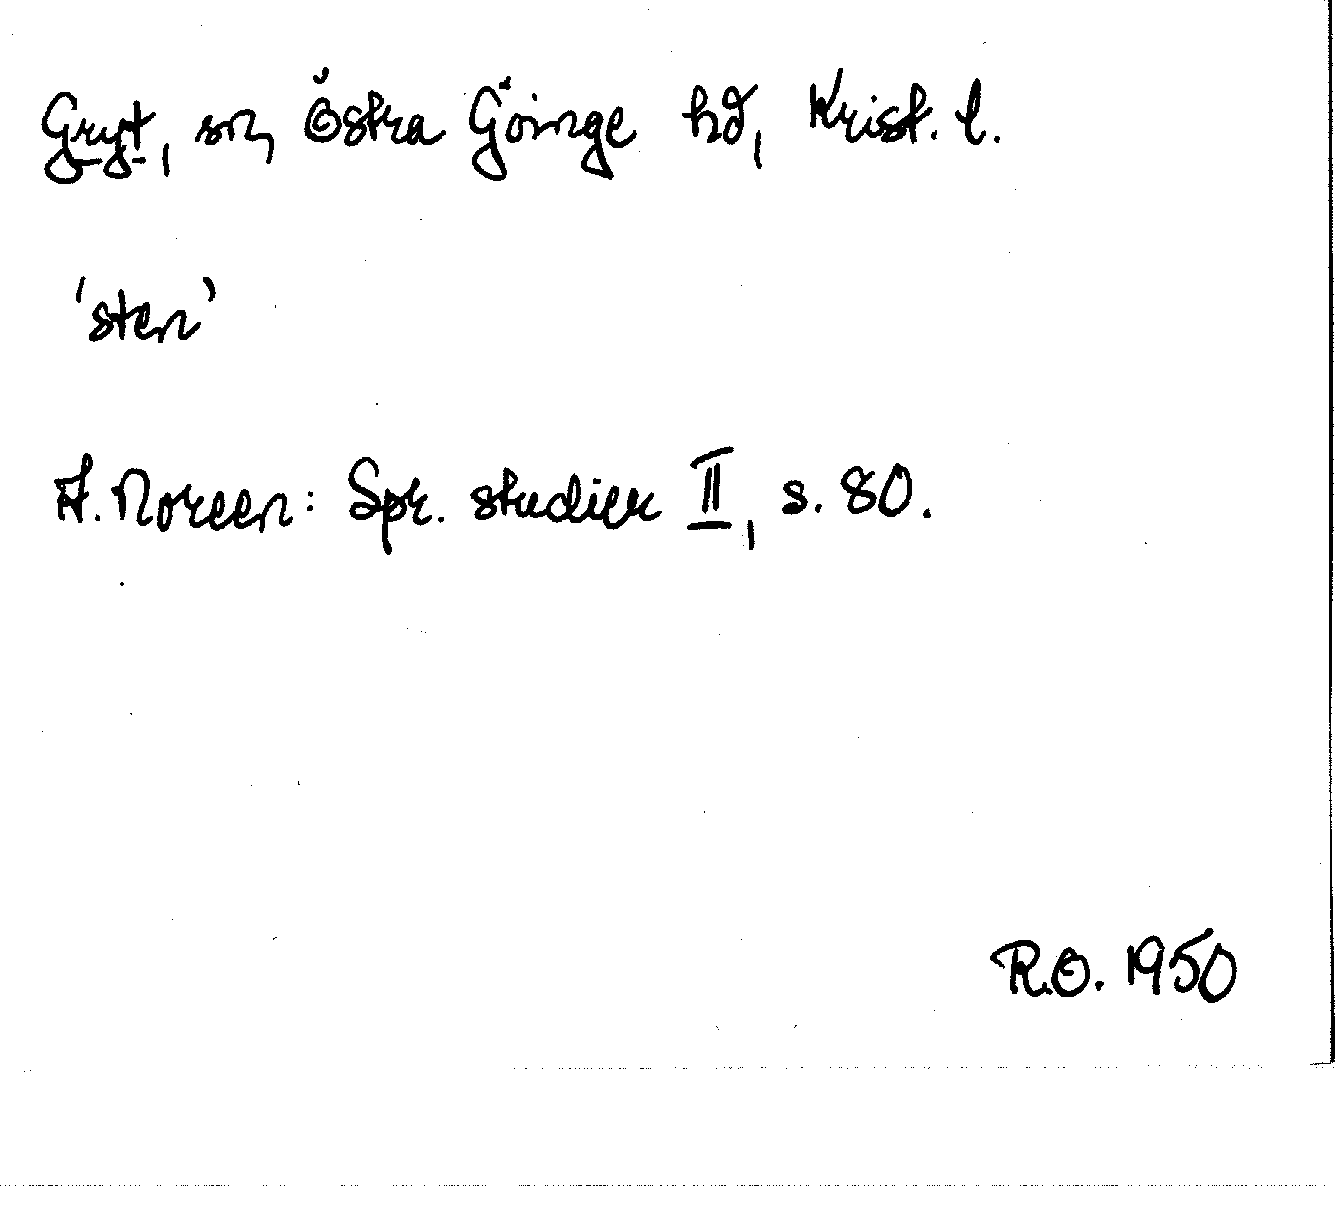 Gryt, sn, Östra Göinge hd, Krist. l.
'sten'
A. Noreen: Spr. studier II, s. 80.
R.O. 1950